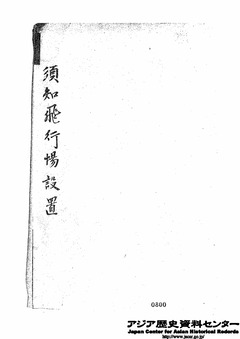 須知飛行場設置
0800
アジア歴史資料センター
Japan Center for Asian Historical Records
http://www.jacar.go.jp/